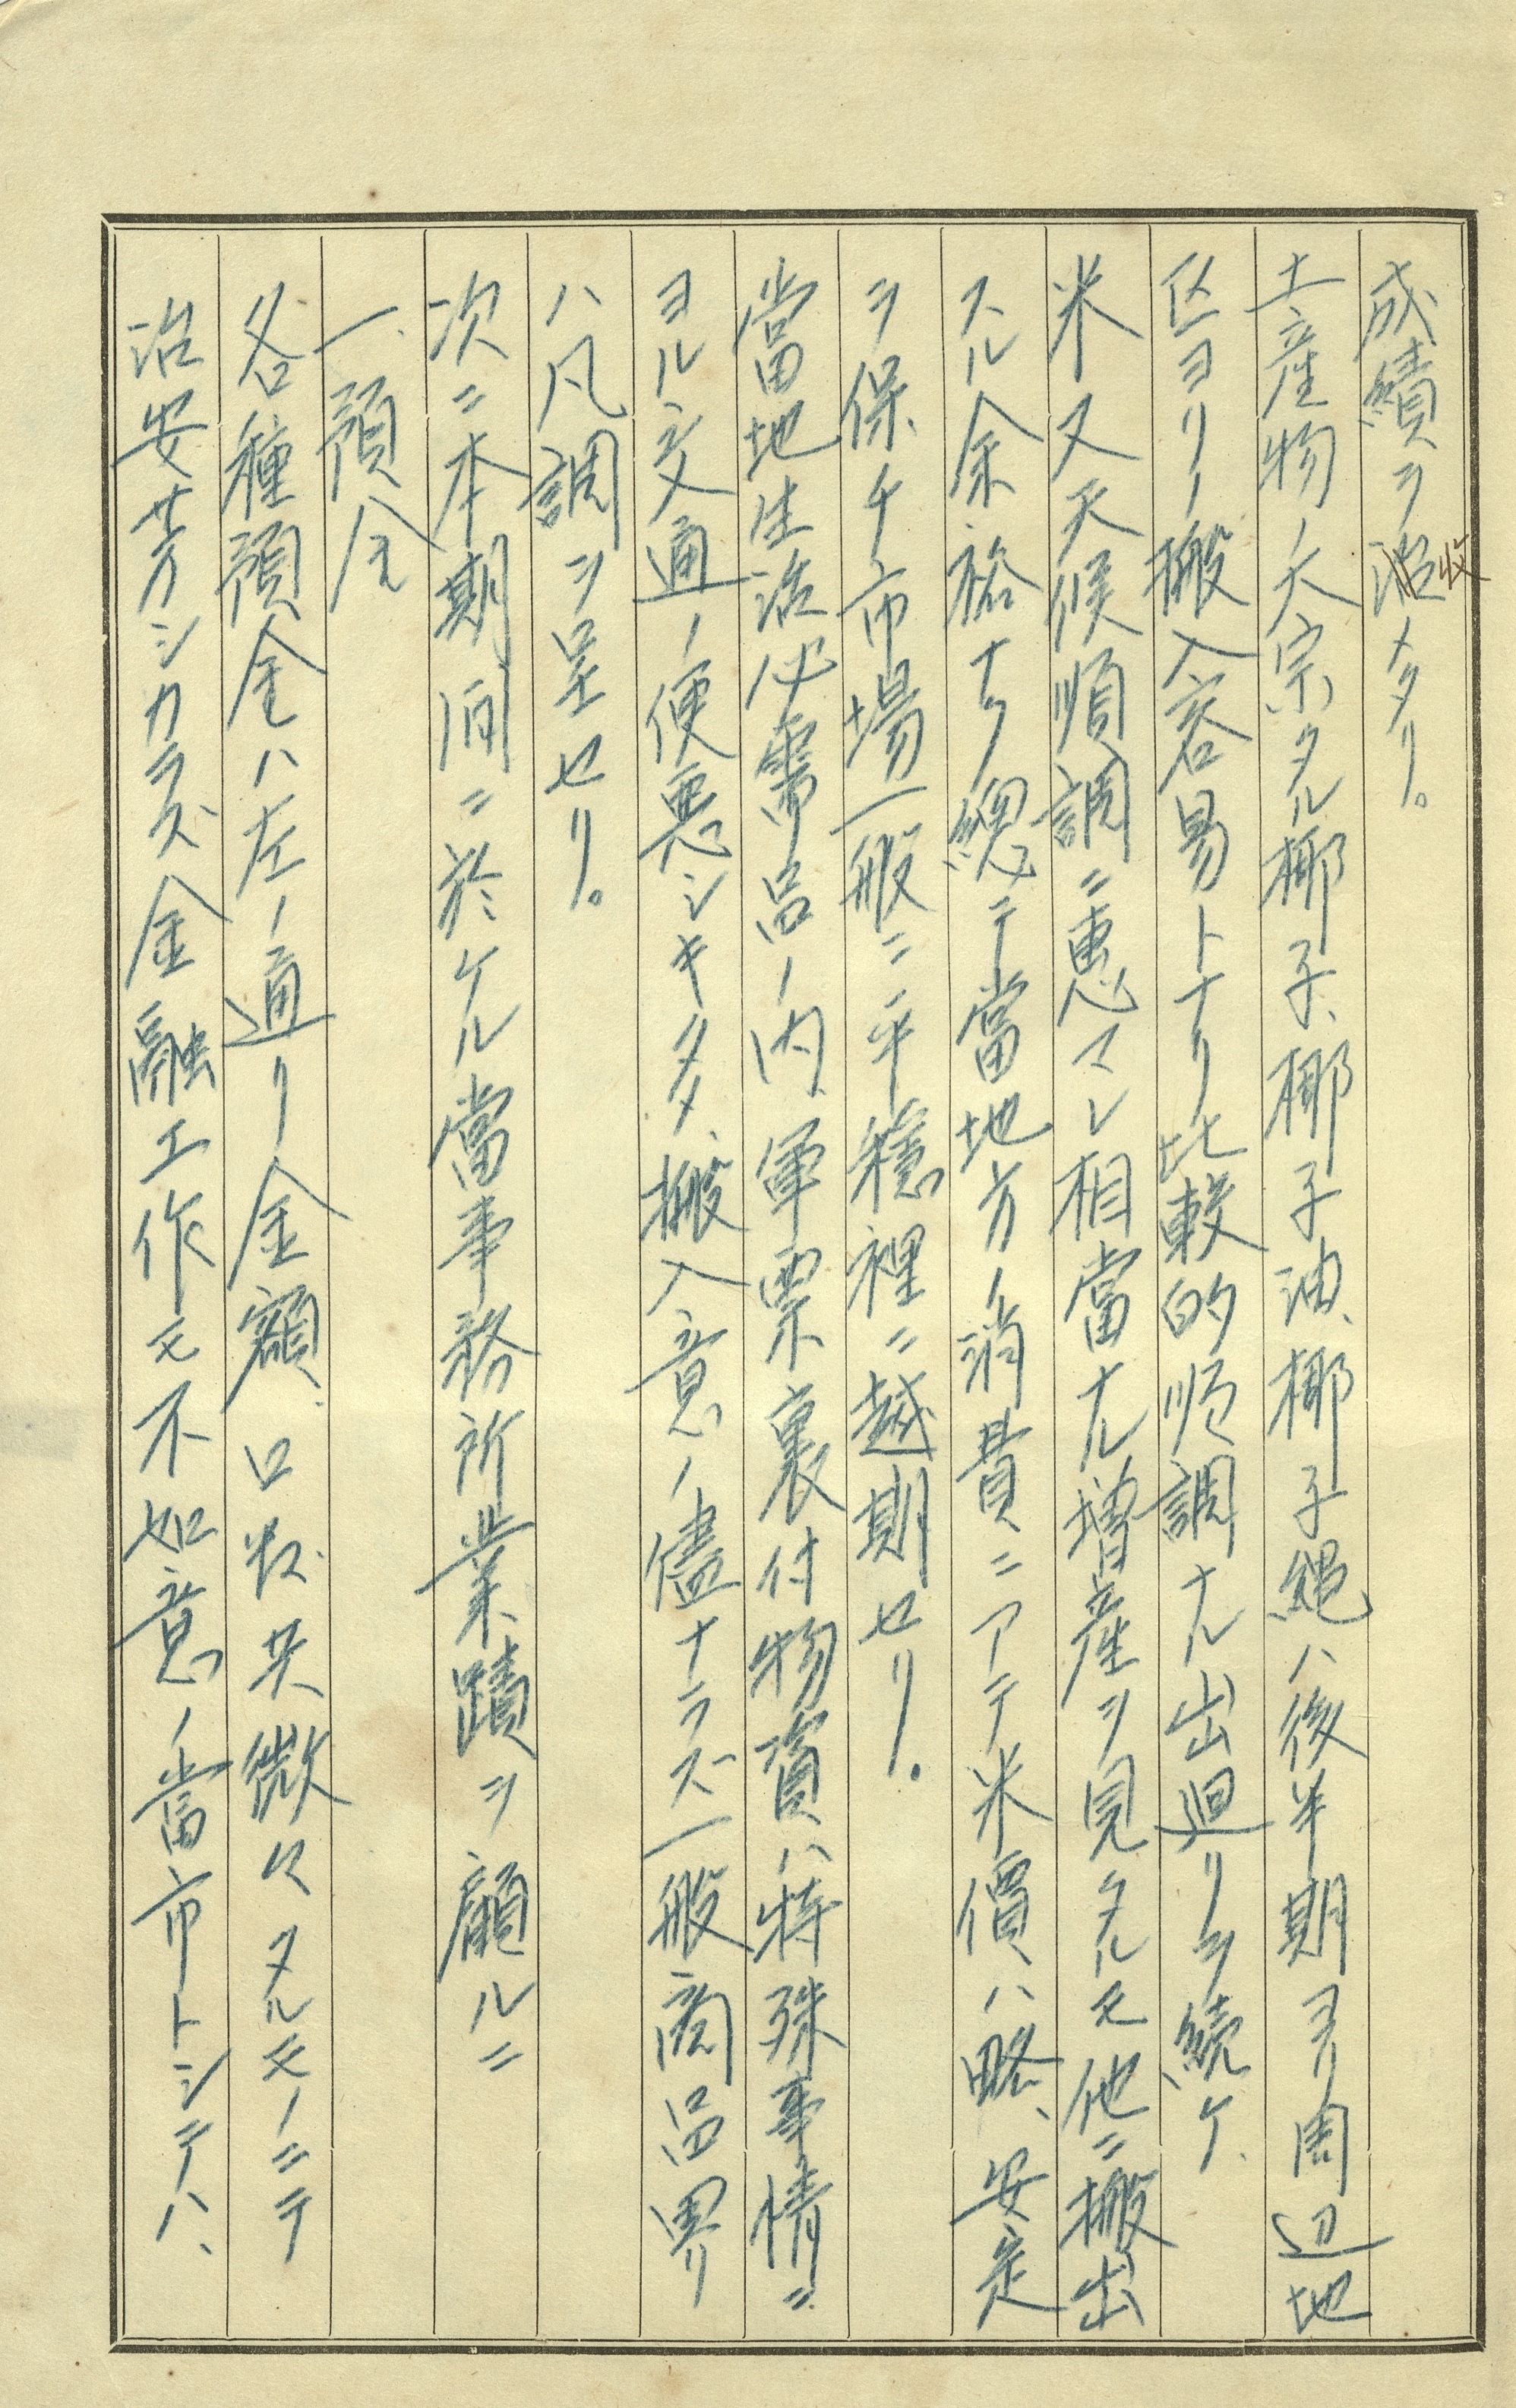 成績ヲ收メタリ。
土産物ノ大宗タル椰子、椰子油、椰子繩ハ後半期ヨリ周辺地
区ヨリノ搬入容易トナリ比較的順調ナル出廻リヲ続ケ、
米又天候順調ニ惠マレ相當ナル増産ヲ見タルモ他ニ搬出
スル余裕ナク總テ當地方ノ消費ニアテ米價ハ略、安定
ヲ保チ市場一般ニ平穏裡ニ越期セリ。
當地生活必需品ノ内、軍票裏付物資ハ特殊事情ニ
ヨル交通ノ便悪シキタメ、搬入意ノ儘ナラズ一般商品界
ハ凡調ヲ呈セリ。
次ニ本期間ニ於ケル當事務所業蹟ヲ顧ルニ
一、預金
各種預金ハ左ノ通リ金額、口数共微々タルモノニテ
治安芳シカラズ金融工作モ不如意ノ當市トシテハ、